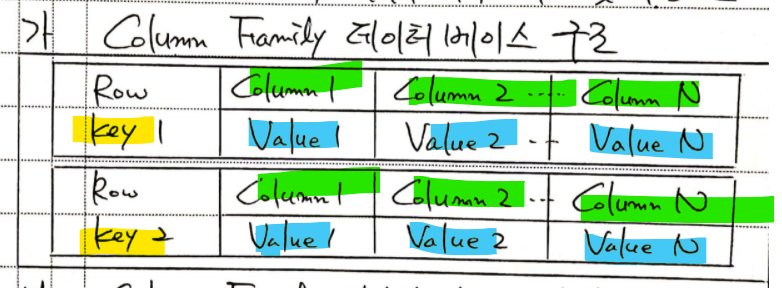 가 Column Family 데이터베이스 구조
Row Column 1 Column 2 ····· Column N
key 1 Value 1 Value 2 ·· Value N
Row Column 1 Column 2 ··· Column N
key 2 Value 1 Value 2 Value N